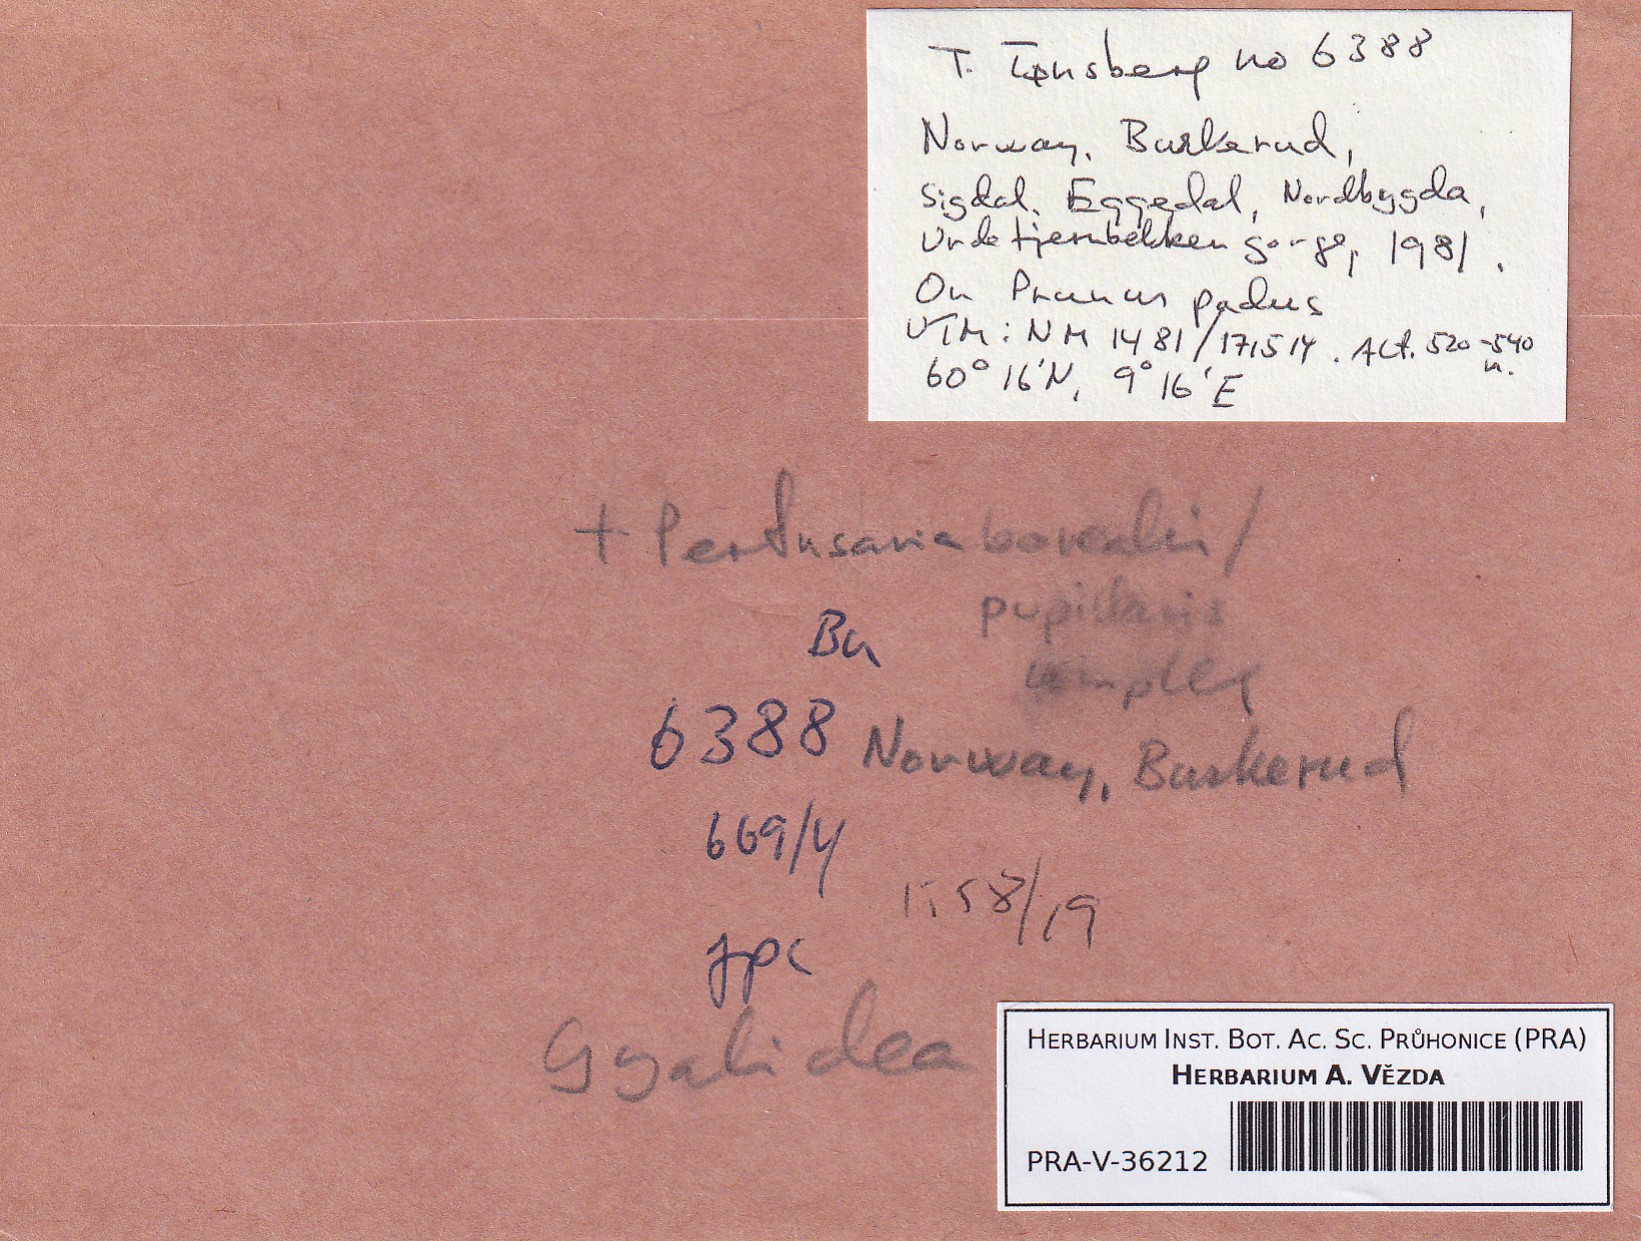 T. Tønsberg no 6388
Norway, Buskerud,
Sigdal, Eggedal, Nordbygda,
Urdetjernbekken gorge, 1981.
On Prunus padus
UTM: NM 1481/171514. Alt. 520-540
m.
60° 16'N, 9° 16'E
+ Pertusaria borealis/
pupillaris
complex
Bu
6388 Norway, Buskerud
669/4
58/19
Gyalidea
HERBARIUM INST. BOT. AC. SC. PRŮHONICE (PRA)
HERBARIUM A. VĚZDA
PRA-V-36212